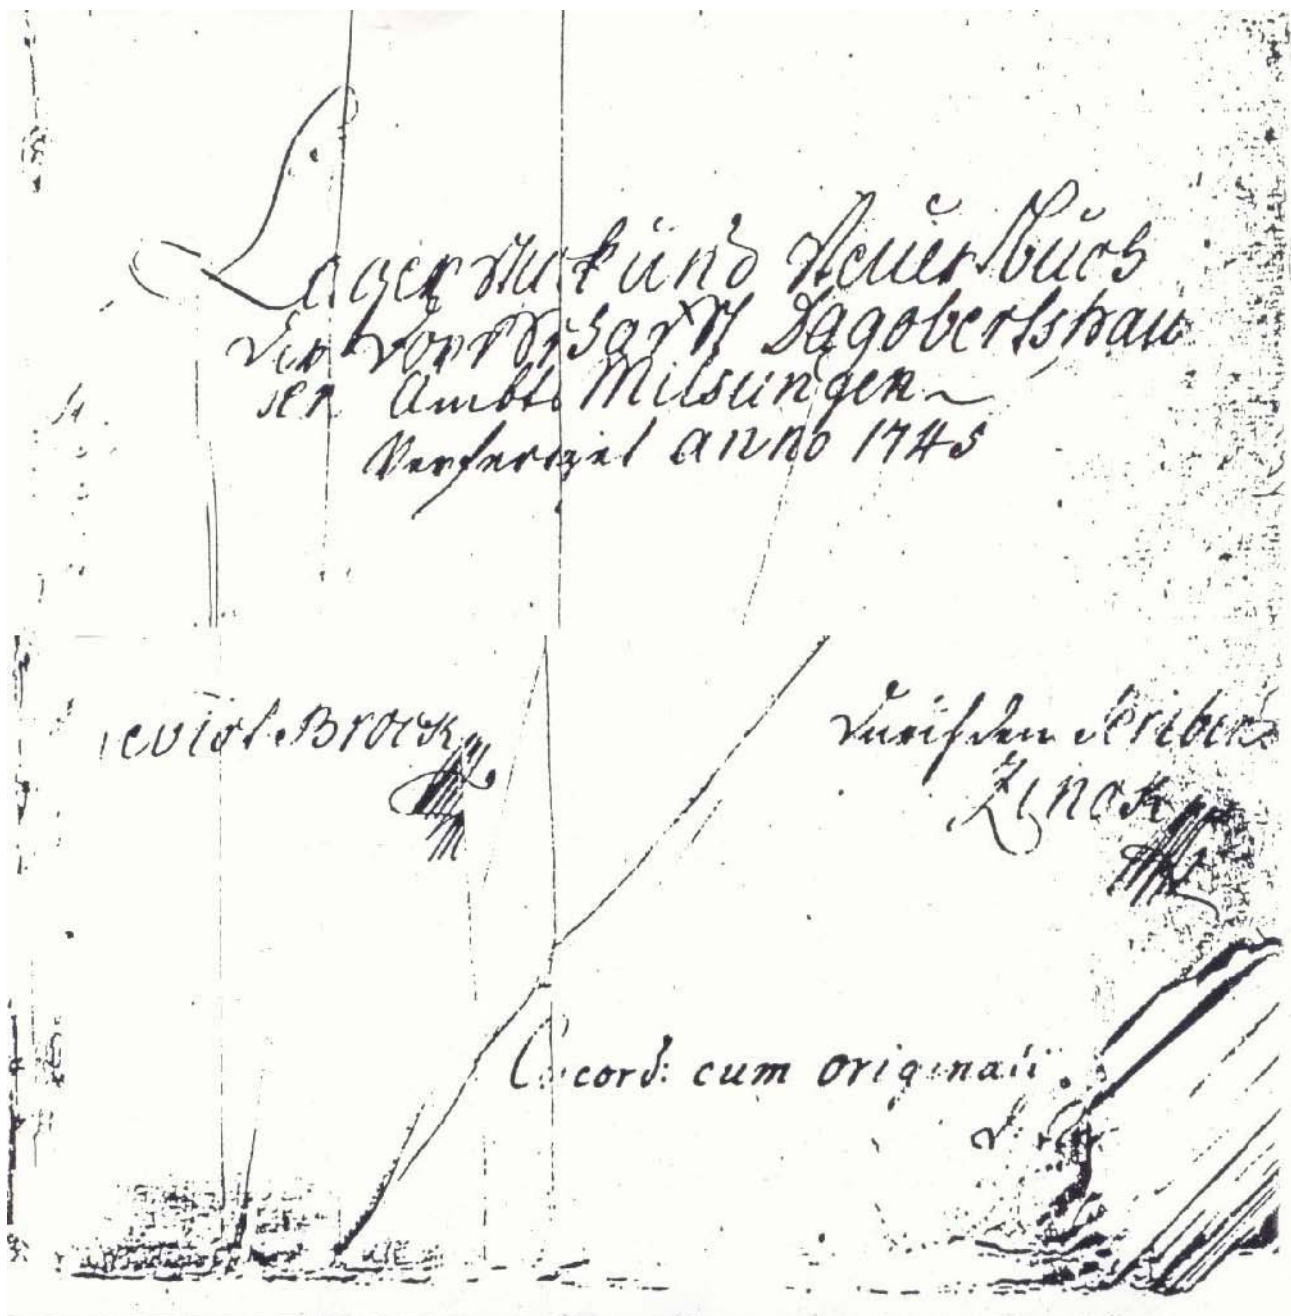 Lager Stuck und Steuer Buch
der Dorffschafft Dagobertshau
sen Ambts Milsungen
Verfertiget anno 1745
revidt. Brock
durch den Scriben
Zinck
Concord: cum originali